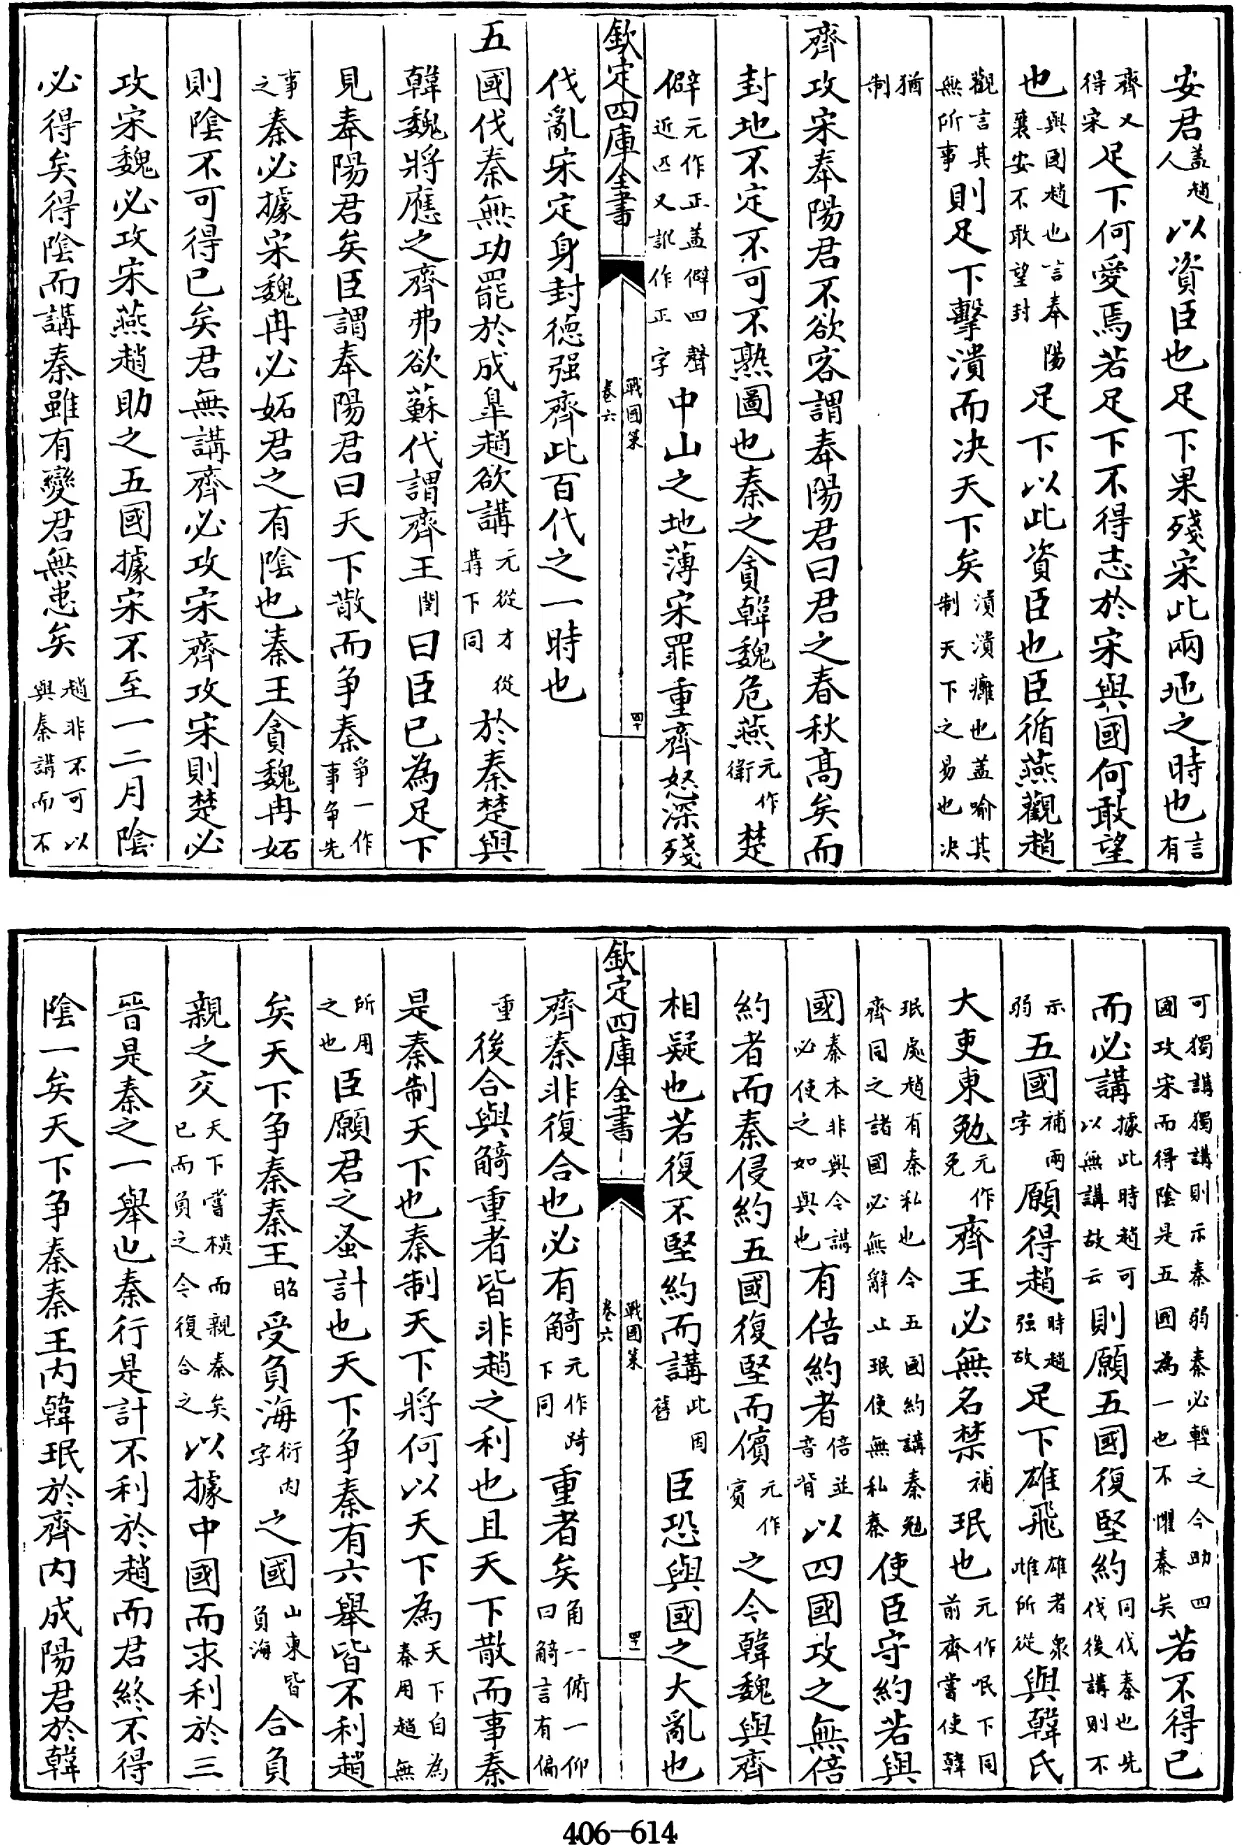 安君蓋趙人以資臣也足下果殘宋此兩地之時也言有
齊又得宋足下何愛焉若足下不得志於宋與國何敢望
也與國趙也言奉陽襄安不敢望封足下以此資臣也臣循燕觀趙
觀言其無所事則足下擊潰而决天下矣潰潰癰也蓋喻其制天下之易也决
猶制
齊攻宋奉陽君不欲客謂奉陽君曰君之春秋高矣而
封地不定不可不熟圖也秦之貪韓魏危燕元作衛楚
僻元作正蓋僻四聲近匹又訛作正字中山之地薄宋罪重齊怒深殘
欽定四庫全書
戰國策
卷六
四十
伐亂宋定身封德强齊此百代之一時也
五國伐秦無功罷於成臯趙欲講元從才從冓下同於秦楚與
韓魏將應之齊弗欲蘇代謂齊王閔曰臣已為足下
見奉陽君矣臣謂奉陽君曰天下散而争秦爭一作事争先
事之秦必據宋魏冉必妬君之有陰也秦王貪魏冉妬
則陰不可得已矣君無講齊必攻宋齊攻宋則楚必
攻宋魏必攻宋燕趙助之五國據宋不至一二月陰
必得矣得陰而講秦雖有變君無患矣趙非不可以與秦講而不
可獨講獨講則示秦弱秦必輕之今助四國攻宋而得陰是五國為一也不懼秦矣若不得已
而必講據此時趙可以無講故云則願五國復堅約同伐秦也先伐後講則不
示弱五國補兩字願得趙時趙强故足下雄飛雄者衆雌所從與韓氏
大吏東勉元作免齊王必無名禁補珉也元作呡下同前齊嘗使韓
珉處趙有秦私也今五國約講秦勉齊同之諸國必無辭止珉使無私秦使臣守約若與
國秦本非與今講必使之如與也有倍約者倍並音背以四國攻之無倍
約者而秦侵約五國復堅而儐元作賓之今韓魏與齊
相疑也若復不堅約而講此因舊臣恐與國之大亂也
欽定四庫全書
戰國策
卷六
四十一
齊秦非復合也必有觭元作踦下同重者矣角一俯一仰曰觭言有偏
重後合與觭重者皆非趙之利也且天下散而事秦
是秦制天下也秦制天下將何以天下為天下自為秦用趙無
所用之也臣願君之蚤計也天下争秦有六舉皆不利趙
矣天下争秦秦王昭受負海衍内字之國山東皆負海合負
親之交天下嘗横而親秦矣已而負之今復合之以據中國而求利於三
晉是秦之一舉也秦行是計不利於趙而君終不得
陰一矣天下争秦秦王内韓珉於齊内成陽君於韓
406-614